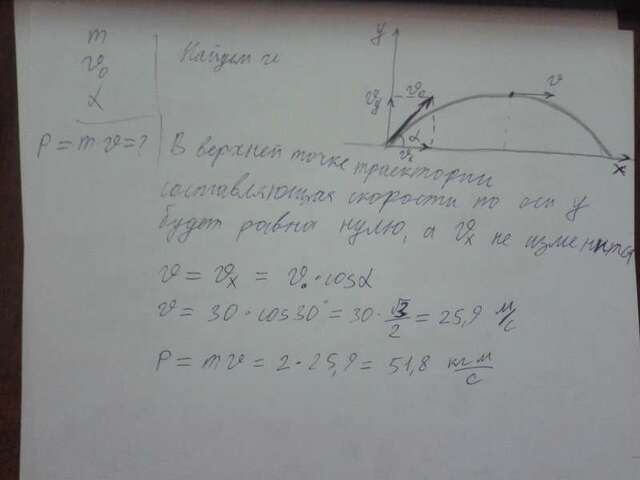 m
v₀
α
P = m v = ?
Найдем v
y
v_y
v₀
v
α
v_x
x
В верхней точке траектории
составляющая скорости по оси y
будет равна нулю, а v_x не изменится
v = v_x = v₀ · cosα
v = 30 · cos30° = 30 · √3/2 = 25,9 м/с
P = m v = 2 · 25,9 = 51,8 кг м/с